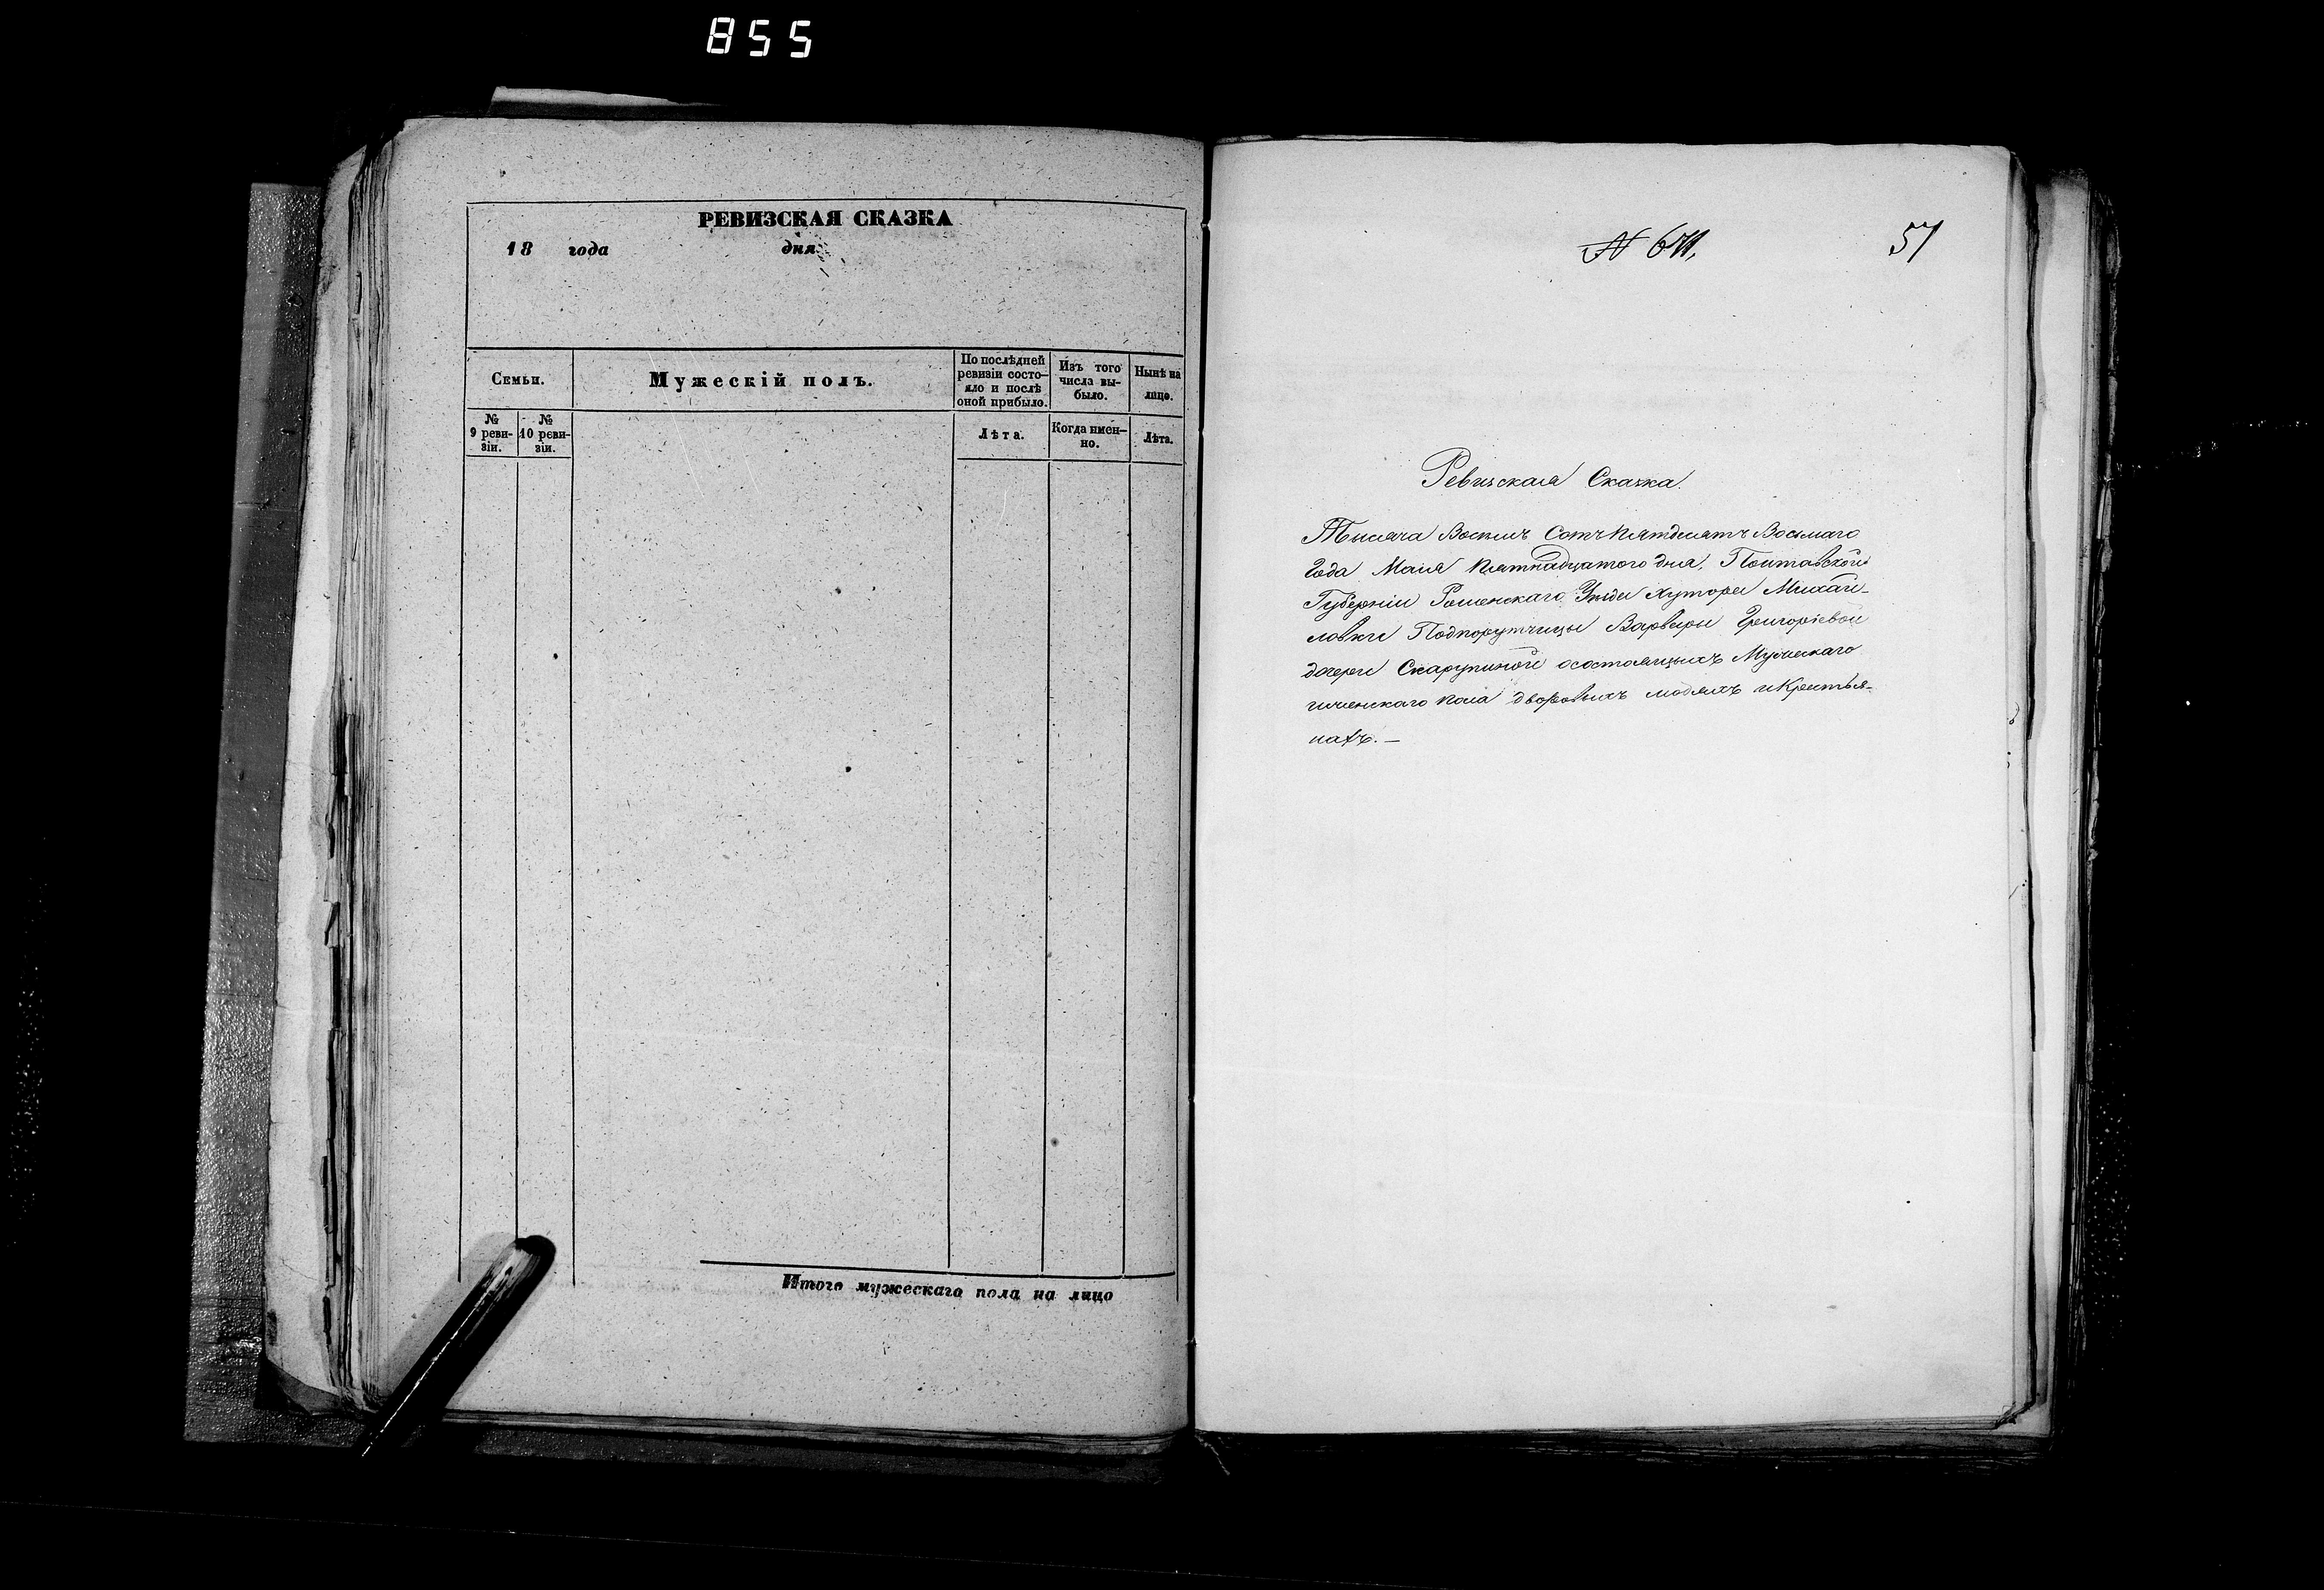 855
РЕВИЗСКАЯ СКАЗКА
18 года дня
Семьи.
Мужескій полъ.
По послѣдней
ревизіи состо-
яло и послѣ
оной прибыло.
Изъ того
числа вы-
было.
Нынѣ на
лицо.
№
9 реви-
зіи.
№
10 реви-
зіи.
Лѣта.
Когда имен-
но.
Лѣта.
Итого мужескаго пола на лицо
57
Ревизская Сказка.
Тысяча Восемъ Сотъ Пятдесятъ Восьмаго
Года Маия Пятнадцатого дня, Полтавской
Губерніи Роменскаго Уезда Хутора Михай-
ловки Подпорутчицы Варвары Григоріевой
дочери Скарупиной осостоящихъ Мужескаго
иженскаго пола дворовыхъ людяхъ икрестья-
нахъ. —